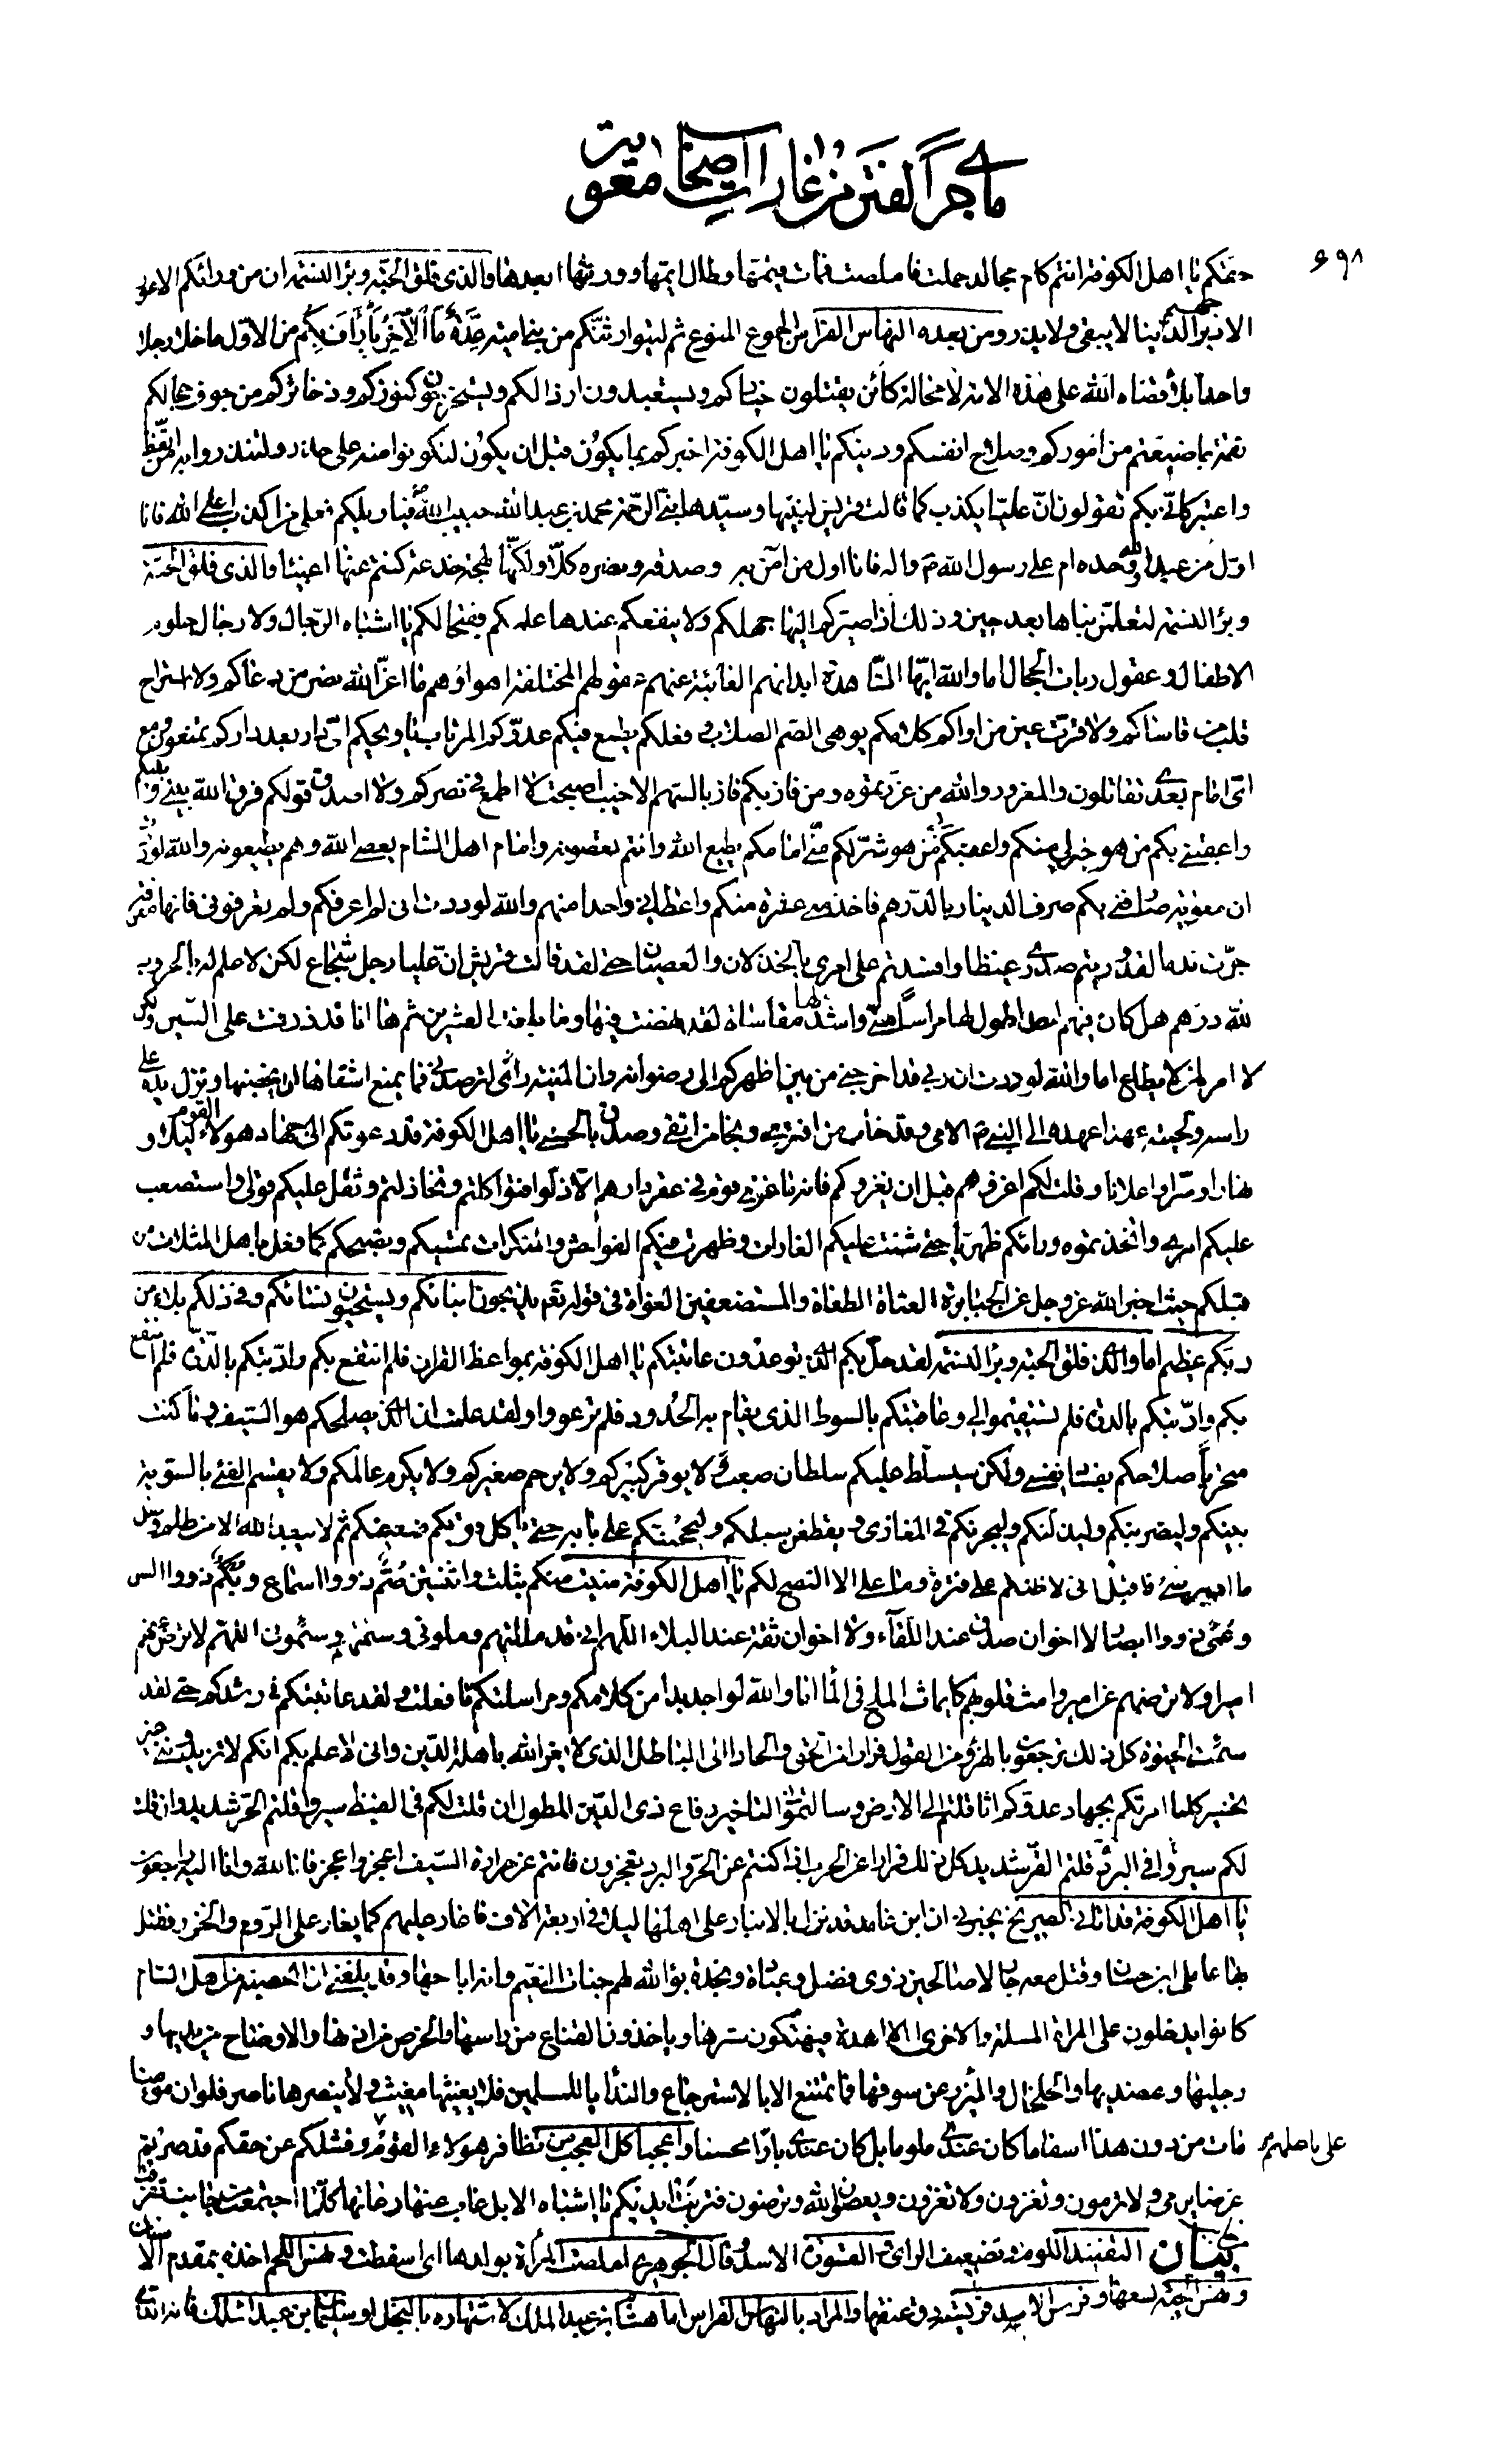 ما جرى من الفتن من غارات اصحاب معوية
٦٩٨
حقكم يا اهل الكوفة انتم كام مجالد حملت فاملصت فمات قيمها وطال ايمها وورثها ابعدها والذي فلق الحبة وبرأ النسمة ان من ورائكم الاعور
الادبر جهنم الدنيا لا يبقي ولا يذر ومن بعده النهاس الفراس الجموع المنوع ثم ليتوارثنكم من بني امية عدة ما الآخر بأرأف بكم من الاول ما خلا رجلا
واحدا بلاء قضاه الله على هذه الامة لا محالة كائن يقتلون خياركم ويستعبدون ارذالكم ويستخرجون كنوزكم وذخائركم من جوف حجالكم
نقمة بما ضيعتم من اموركم وصلاح انفسكم ودينكم يا اهل الكوفة اخبركم بما يكون قبل ان يكون لتكونوا منه على حذر ولتنذروا به من اتعظ
واعتبر كاني بكم تقولون ان عليا يكذب كما قالت قريش لنبيها وسيدها نبي الرحمة محمد بن عبد الله حبيب الله فيا ويلكم فعلى من اكذب اعلى الله فانا
اول من عبد الله وحده ام على رسول الله ص واله فانا اول من آمن به وصدقه ونصره كلا ولكنها لهجة خدعة كنتم عنها اغنياء والذي فلق الحبة
وبرأ النسمة لتعلمن نباها بعد حين وذلك اذا صيركم اليها جهلكم ولا ينفعكم عندها علمكم فقبحا لكم يا اشباه الرجال ولا رجال حلوم
الاطفال وعقول ربات الحجال اما والله ايها الشاهدة ابدانهم الغائبة عنهم عقولهم المختلفة اهواؤهم ما اعز الله نصر من دعاكم ولا استراح
قلب من قاساكم ولا قرت عين من اواكم كلامكم يوهي الصم الصلاب وفعلكم يطمع فيكم عدوكم المرتاب يا ويحكم اي دار بعد داركم تمنعون ومع
اي امام بعدي تقاتلون والمغرور والله من غررتموه ومن فاز بكم فاز بالسهم الاخيب اصبحت لا اطمع في نصركم ولا اصدق قولكم فرق الله بيني وبينكم
واعقبني بكم من هو خير لي منكم واعقبكم من هو شر لكم مني امامكم يطيع الله وانتم تعصونه وامام اهل الشام يعصي الله وهم يطيعونه والله لوددت
ان معوية صارفني بكم صرف الدينار بالدرهم فاخذ مني عشرة منكم واعطاني واحدا منهم والله لوددت اني لم اعرفكم ولم تعرفوني فانها معرفة
جرت ندما لقد وريتم صدري غيظا وافسدتم علي امري بالخذلان والعصيان حتى لقد قالت قريش ان عليا رجل شجاع لكن لا علم له بالحروب
لله درهم هل كان فيهم احد اطول لها مراسا مني واشد لها مقاساة لقد نهضت فيها وما بلغت العشرين ثم ها انا قد ذرفت على الستين ولكن
لا امر لمن لا يطاع اما والله لوددت ان ربي قد اخرجني من بين اظهركم الى رضوانه وان المنية لترصدني فما يمنع اشقاها ان يخضبها ونزل يده على
راسه ولحيته عهدا عهده الي النبي ص الامي وقد خاب من افترى ونجا من اتقى وصدق بالحسنى يا اهل الكوفة قد دعوتكم الى جهاد هؤلاء القوم ليلا و
نهارا وسرا واعلانا وقلت لكم اغزوهم قبل ان يغزوكم فانه ما غزي قوم في عقر دارهم الا ذلوا فتواكلتم وتخاذلتم وثقل عليكم قولي واستصعب
عليكم امري واتخذتموه وراءكم ظهريا حتى شنت عليكم الغارات وظهرت فيكم الفواحش والمنكرات تمسيكم وتصبحكم كما فعل باهل المثلات من
قبلكم حيث اخبر الله عز وجل عن الجبابرة العتاة الطغاة والمستضعفين الغواة في قوله تع يذبحون ابناءكم ويستحيون نساءكم وفي ذلكم بلاء من
ربكم عظيم اما والذي فلق الحبة وبرأ النسمة لقد حل بكم الذي توعدون عاتبتكم يا اهل الكوفة بمواعظ القران فلم انتفع بكم وادبتكم بالدرة فلم انتفع
بكم وادبتكم بالدرة فلم تستقيموا لي وعاقبتكم بالسوط الذي يقام به الحدود فلم ترعووا ولقد علمت ان الذي يصلحكم هو السيف وما كنت
متحريا صلاحكم بفساد نفسي ولكن سيسلط عليكم سلطان صعب لا يوقر كبيركم ولا يرحم صغيركم ولا يكرم عالمكم ولا يقسم الفئ بالسوية
بينكم وليضربنكم وليذلنكم وليجمرنكم في المغازي ويقطعن سبلكم وليحجبنكم على بابه حتى ياكل قويكم ضعيفكم ثم لا يبعد الله الا من ظلم وقل
ما ادبر شئ فاقبل اني لاظنكم على فترة وما علي الا النصح لكم يا اهل الكوفة منيت منكم بثلث واثنتين صم ذووا اسماع وبكم ذووا السن
وعمي ذووا ابصار لا اخوان صدق عند اللقاء ولا اخوان ثقة عند البلاء اللهم اني قد مللتهم وملوني وسئمتهم وسئموني اللهم لا ترض عنهم
اميرا ولا ترضهم عن امير وامث قلوبهم كما يماث الملح في الماء اما والله لو اجد بدا من كلامكم ومراسلتكم ما فعلت ولقد عاتبتكم في رشدكم حتى لقد
سئمت الحيوة كل ذلك ترجعون بالهزء من القول فرارا من الحق والحادا الى الباطل الذي لا يعز الله باهله الدين واني لاعلم بكم انكم لا تزيدونني غير
تخسير كلما امرتكم بجهاد عدوكم اثاقلتم الى الارض وسالتموني التاخير دفاع ذي الدين المطول ان قلت لكم في القيظ سيروا قلتم الحر شديد وان قلت
لكم سيروا في البرد قلتم القر شديد كل ذلك فرارا عن الحرب اذا كنتم عن الحر والبرد تعجزون فانتم عن حرارة السيف اعجز واعجز فانا لله وانا اليه راجعون
يا اهل الكوفة قد اتاني الصريخ يخبرني ان ابن غامد قد نزل بالانبار على اهلها ليلا في اربعة الاف فاغار عليهم كما يغار على الروم والخزر فقتل
بها عاملي ابن حسان وقتل معه رجالا صالحين ذوي فضل وعبادة ونجدة بوأ الله لهم جنات النعيم وانه اباحها وقد بلغني ان العصبة من اهل الشام
كانوا يدخلون على المراة المسلمة والاخرى المعاهدة فيهتكون سترها وياخذون القناع من راسها والخرص من اذنها والاوضاح من يديها و
رجليها وعضديها والخلخال والميزر عن سوقها فما تمتنع الا بالاسترجاع والنداء يا للمسلمين فلا يغيثها مغيث ولا ينصرها ناصر فلو ان مؤمنا
مات من دون هذا اسفا ما كان عندي ملوما بل كان عندي بارا محسنا واعجبا كل العجب من تظافر هؤلاء القوم على باطلهم وفشلكم عن حقكم قد صرتم
غرضا يرمى ولا ترمون وتغزون ولا تغزون ويعصى الله وترضون فتربت ايديكم يا اشباه الابل غاب عنها رعاتها كلما اجتمعت من جانب تفرقت
من جانب بيان التفنيد اللوم وتضعيف الراي والقسورة الاسد وقال الجوهري املصت المرأة بولدها اي اسقطت ونهس اللحم اخذه بمقدم الاسنان
ونهس الحية لسعها وفرس الاسد فريسته دق عنقها والمراد بالنهاس الفراس اما هشام بن عبد الملك لاشتهاره بالبخل او سليمان بن عبد الملك فانه